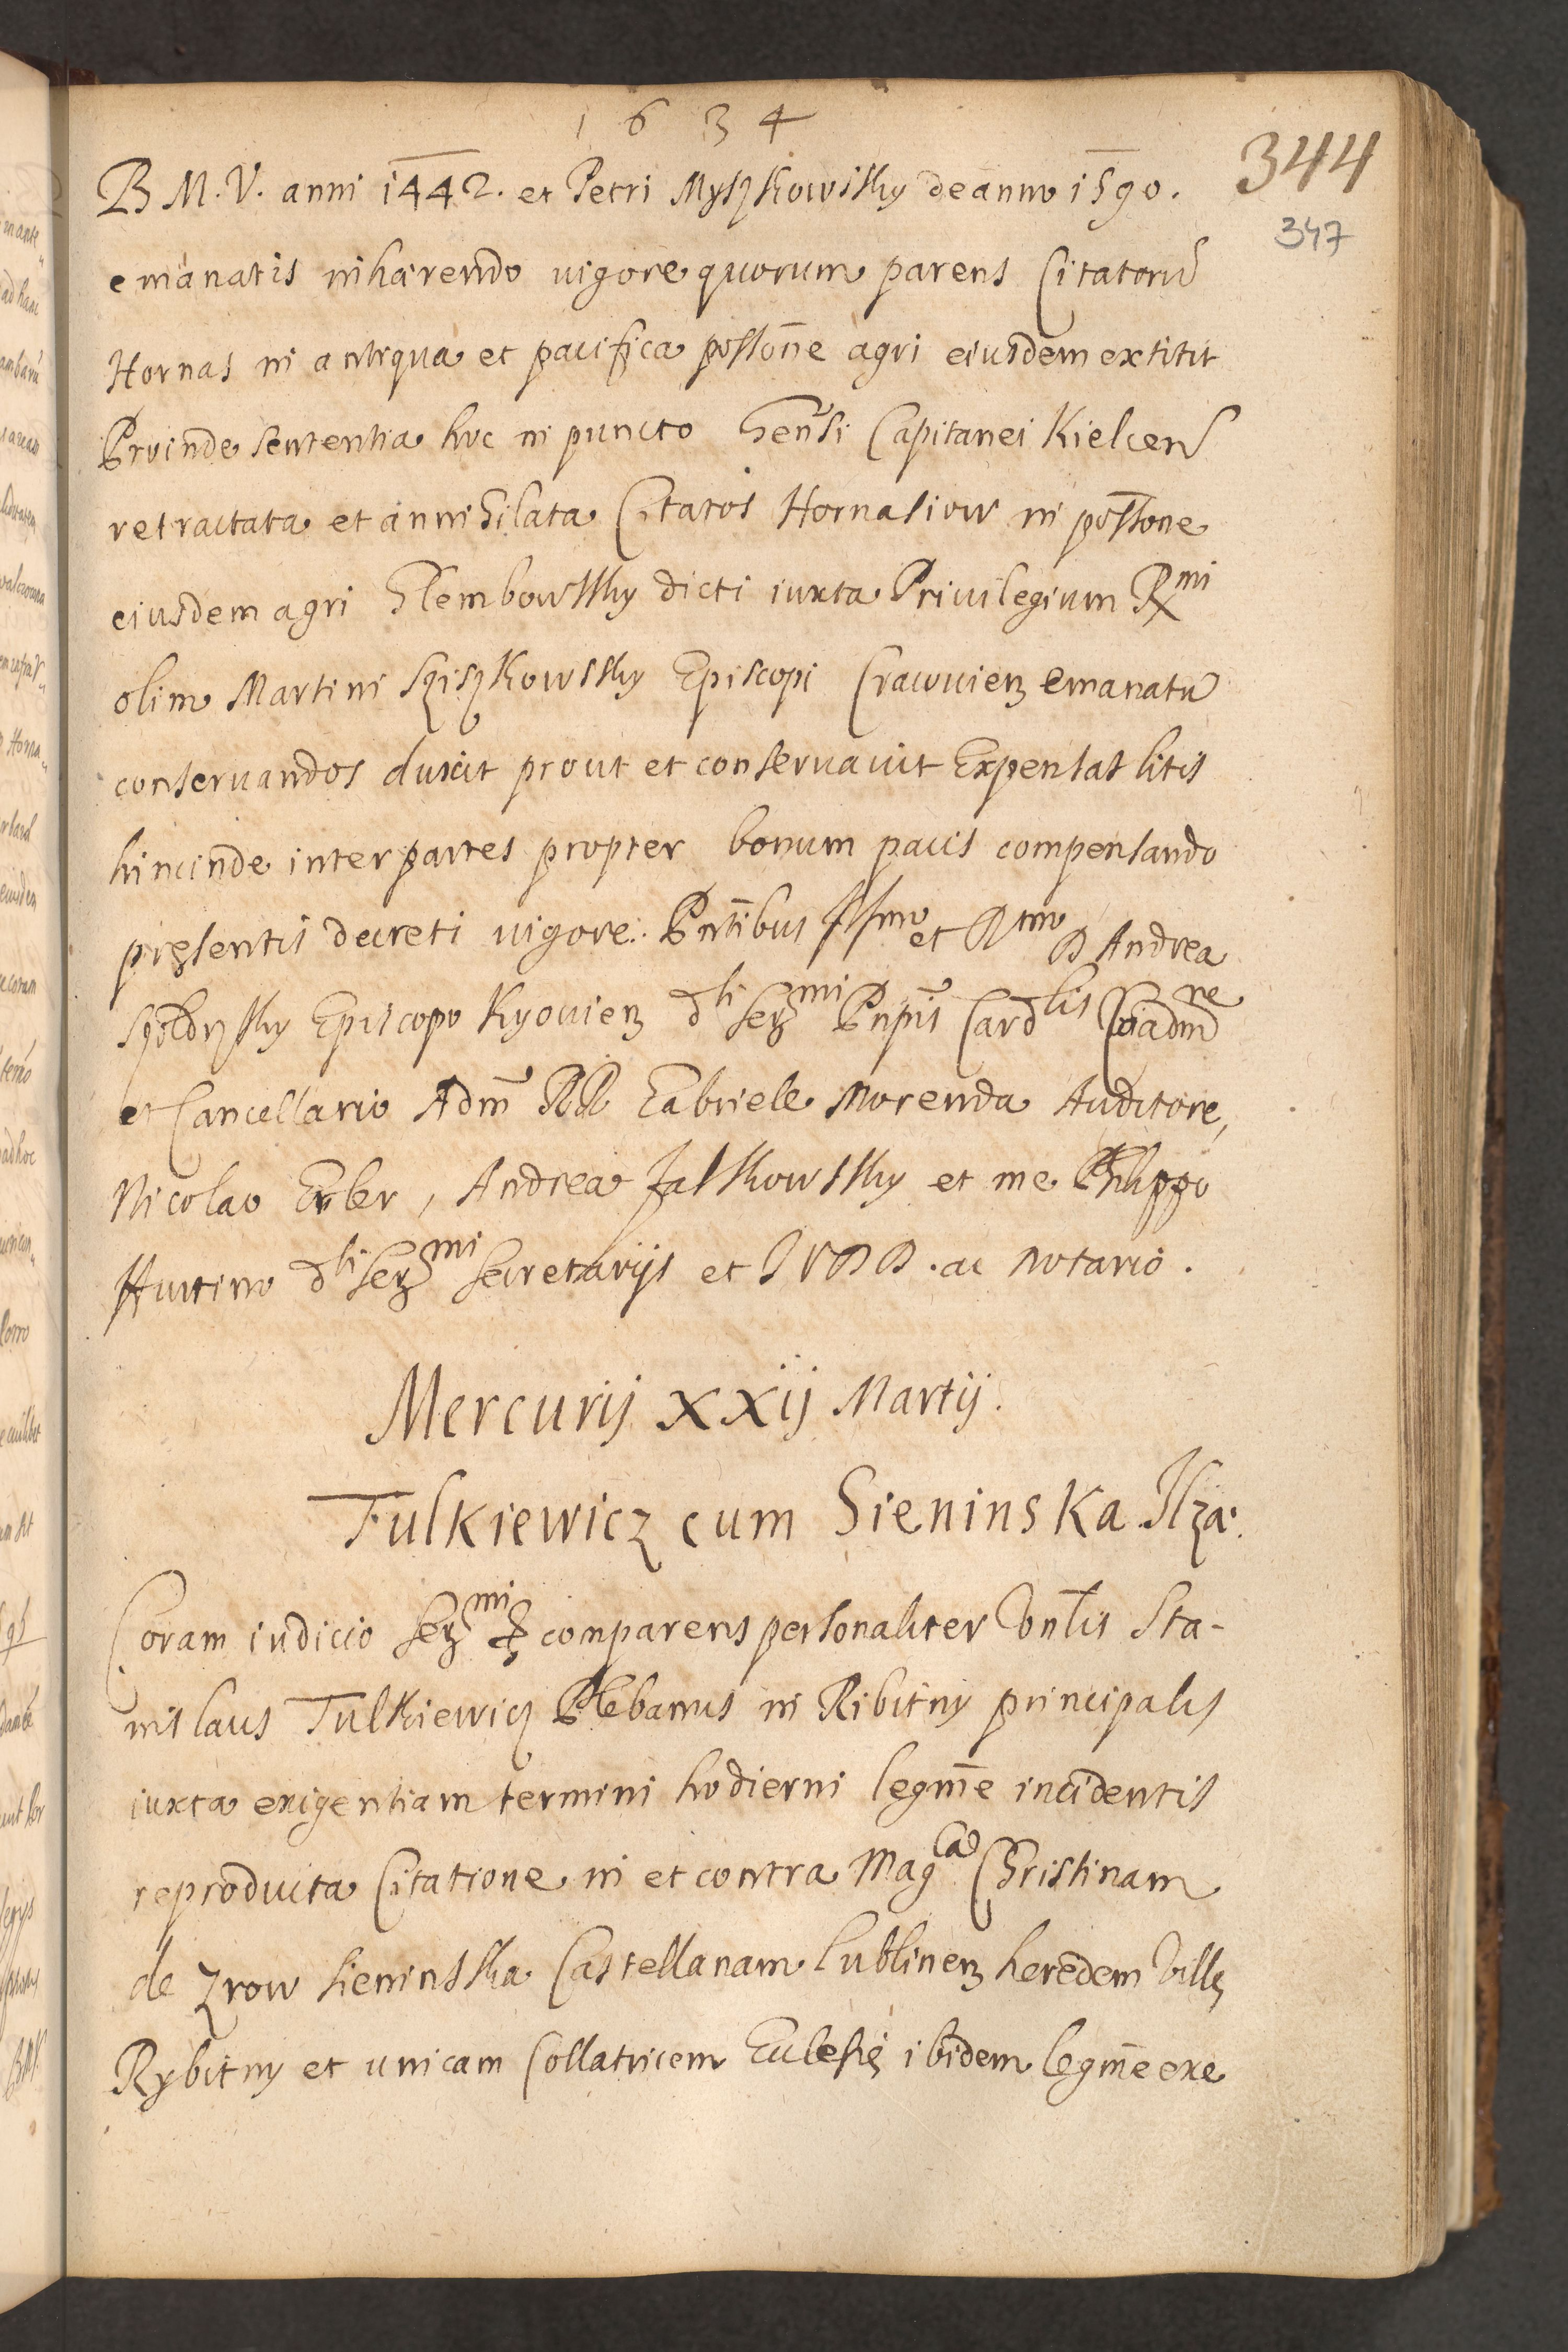 1634
344
347
B M. V. anni 1442. et Petri Myszkowsky de anno 1590.
emanatis inhaerendo vigore quorum parens Citatorũ
Hornas in antiqua et pacifica possoñe agri eiusdem extitit
Proinde sententia hoc in puncto Gen̄si Capitanei Kielcen̄
retractata et annihilata Citatos Hornasiow in possone
eiusdem agri Glembowsky dicti iuxta Privilegium R^mi
olim Martini Szyszkowsky Episcopi Cracovien emanatũ
conservandos duxit prout et conservavit Expensas litis
hincinde inter partes propter bonum pacis compensando
pręsentis decreti vigore. Pñtibus Illmo et Rmo D Andrea
Szoldrsky Episcopo Kyovien dti Ser^mi Prīpis Card^lis
et Cancellario Adm̃ RR Gabriele Morenda Auditore,
Nicolao Erler, Andrea Jalkowsky et me Philippo
Hutino dti Ser^mi Secretarijs et I V D D. ac Notario.
Mercurij XXij Martij.
Tulkiewicz cum Sieninska. Ilza.
Coram iudicio Ser^mi comparens personaliter Vnlis Sta-
nislaus Tulkiewicz Plebanus in Ribitny principalis
iuxta exigentiam termini hodierni legm̃e incidentis
reproducta Citatione in et contra Mag^cã Christinam
de Zrow Sieninska Castellanam Lublinen heredem Villę
Rybitny et unicam Collatricem Ecclesię ibidem legm̃e exe